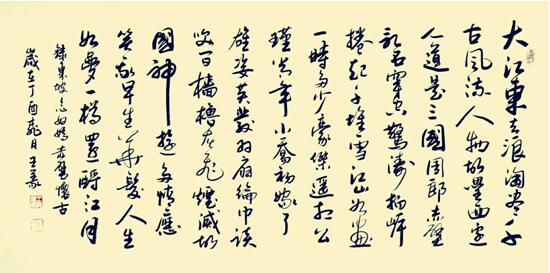 大江東去浪淘盡千
古風流人物故壘西邊
人道是三國周郎赤壁
亂石穿空驚濤拍岸
捲起千堆雪江山如畫
一時多少豪傑遥想公
瑾當年小喬初嫁了
雄姿英發羽扇綸巾談
笑間檣櫓灰飛煙滅故
國神遊多情應
笑我早生華髮人生
如夢一樽還酹江月
錄東坡念奴嬌赤壁懷古
歲在丁酉 月王